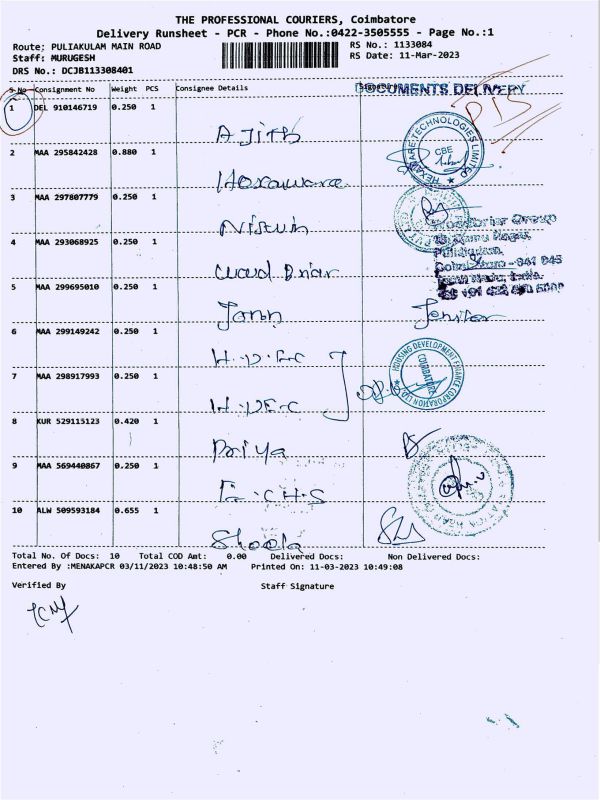 THE PROFESSIONAL COURIERS, Coimbatore
Delivery Runsheet - PCR - Phone No.:0422-3505555 - Page No.:1
Route: PULIAKULAM MAIN ROAD
RS No.: 1133084
Staff: MURUGESH
RS Date: 11-Mar-2023
DRS No.: DCJB113308401
S No Consignment No Weight PCS Consignee Details
DOCUMENTS DELIVERY
1 DEL 910146719 0.250 1
Ajith
HEXAWARE TECHNOLOGIES LIMITED
CBE
2 MAA 295842428 0.880 1
Hexaware
3 MAA 297807779 0.250 1
Group
4 MAA 293068925 0.250 1
Puliakulam,
641 045
5 MAA 299695010 0.250 1
Jenifer
6 MAA 299149242 0.250 1
H.D.F.C
HOUSING DEVELOPMENT FINANCE CORPORATION LTD
COIMBATORE
7 MAA 298917993 0.250 1
H.D.F.C
8 KUR 529115123 0.420 1
Priya
9 MAA 569440867 0.250 1
10 ALW 509593184 0.655 1
Sheela
Total No. Of Docs: 10 Total COD Amt: 0.00 Delivered Docs: Non Delivered Docs:
Entered By :MENAKAPCR 03/11/2023 10:48:50 AM Printed On: 11-03-2023 10:49:08
Verified By Staff Signature